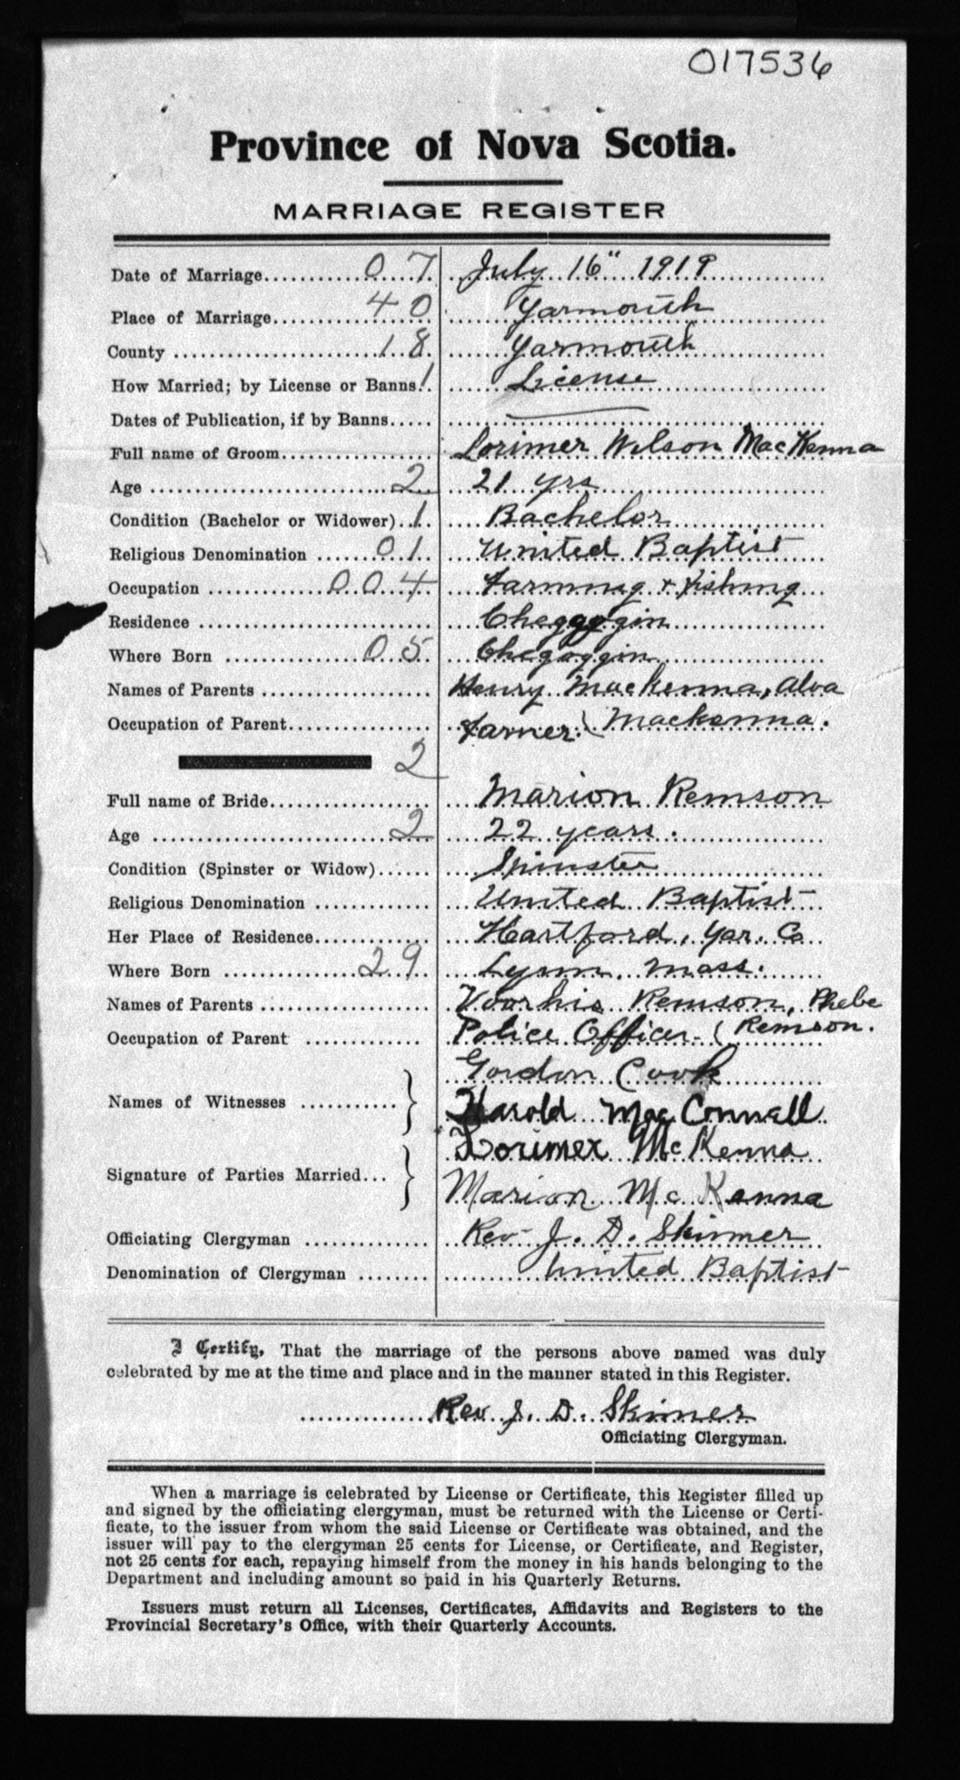 017536
Province of Nova Scotia.
MARRIAGE REGISTER
Date of Marriage............0 7 July 16" 1919
Place of Marriage............4 0 Yarmouth
County ....................1 8 Yarmouth
How Married; by License or Banns. 1 License
Dates of Publication, if by Banns..... ———
Full name of Groom.................. Lorimer Wilson MacKenna
Age ..........................2 21 yrs
Condition (Bachelor or Widower)..1. Bachelor
Religious Denomination ......0 1. United Baptist
Occupation ............0 0 4 Farming & Fishing
Residence ........................... Cheggoggin
Where Born ..............0 5. Chegoggin
Names of Parents .................. Henry Mackenna, Alva
Occupation of Parent................ Farmer. ( Mackenna.
2
Full name of Bride.................... Marion Remson
Age ..........................2 22 years.
Condition (Spinster or Widow)...... Spinster
Religious Denomination ............. United Baptist
Her Place of Residence............... Hartford, Yar. Co
Where Born ..............2 9. Lynn. Mass.
Names of Parents .................. Voorhis Remson, Phebe
Occupation of Parent ............. Police Officer ( Remson.
Gordon Cook
Names of Witnesses ........... } Harold MacConnell
Lorimer McKenna
Signature of Parties Married... } Marion McKenna
Officiating Clergyman ............... Rev J. D. Skinner
Denomination of Clergyman ........ United Baptist
I Certify, That the marriage of the persons above named was duly
celebrated by me at the time and place and in the manner stated in this Register.
Rev. J. D. Skinner
Officiating Clergyman.
When a marriage is celebrated by License or Certificate, this Register filled up
and signed by the officiating clergyman, must be returned with the License or Certi-
ficate, to the issuer from whom the said License or Certificate was obtained, and the
issuer will pay to the clergyman 25 cents for License, or Certificate, and Register,
not 25 cents for each, repaying himself from the money in his hands belonging to the
Department and including amount so paid in his Quarterly Returns.
Issuers must return all Licenses, Certificates, Affidavits and Registers to the
Provincial Secretary's Office, with their Quarterly Accounts.